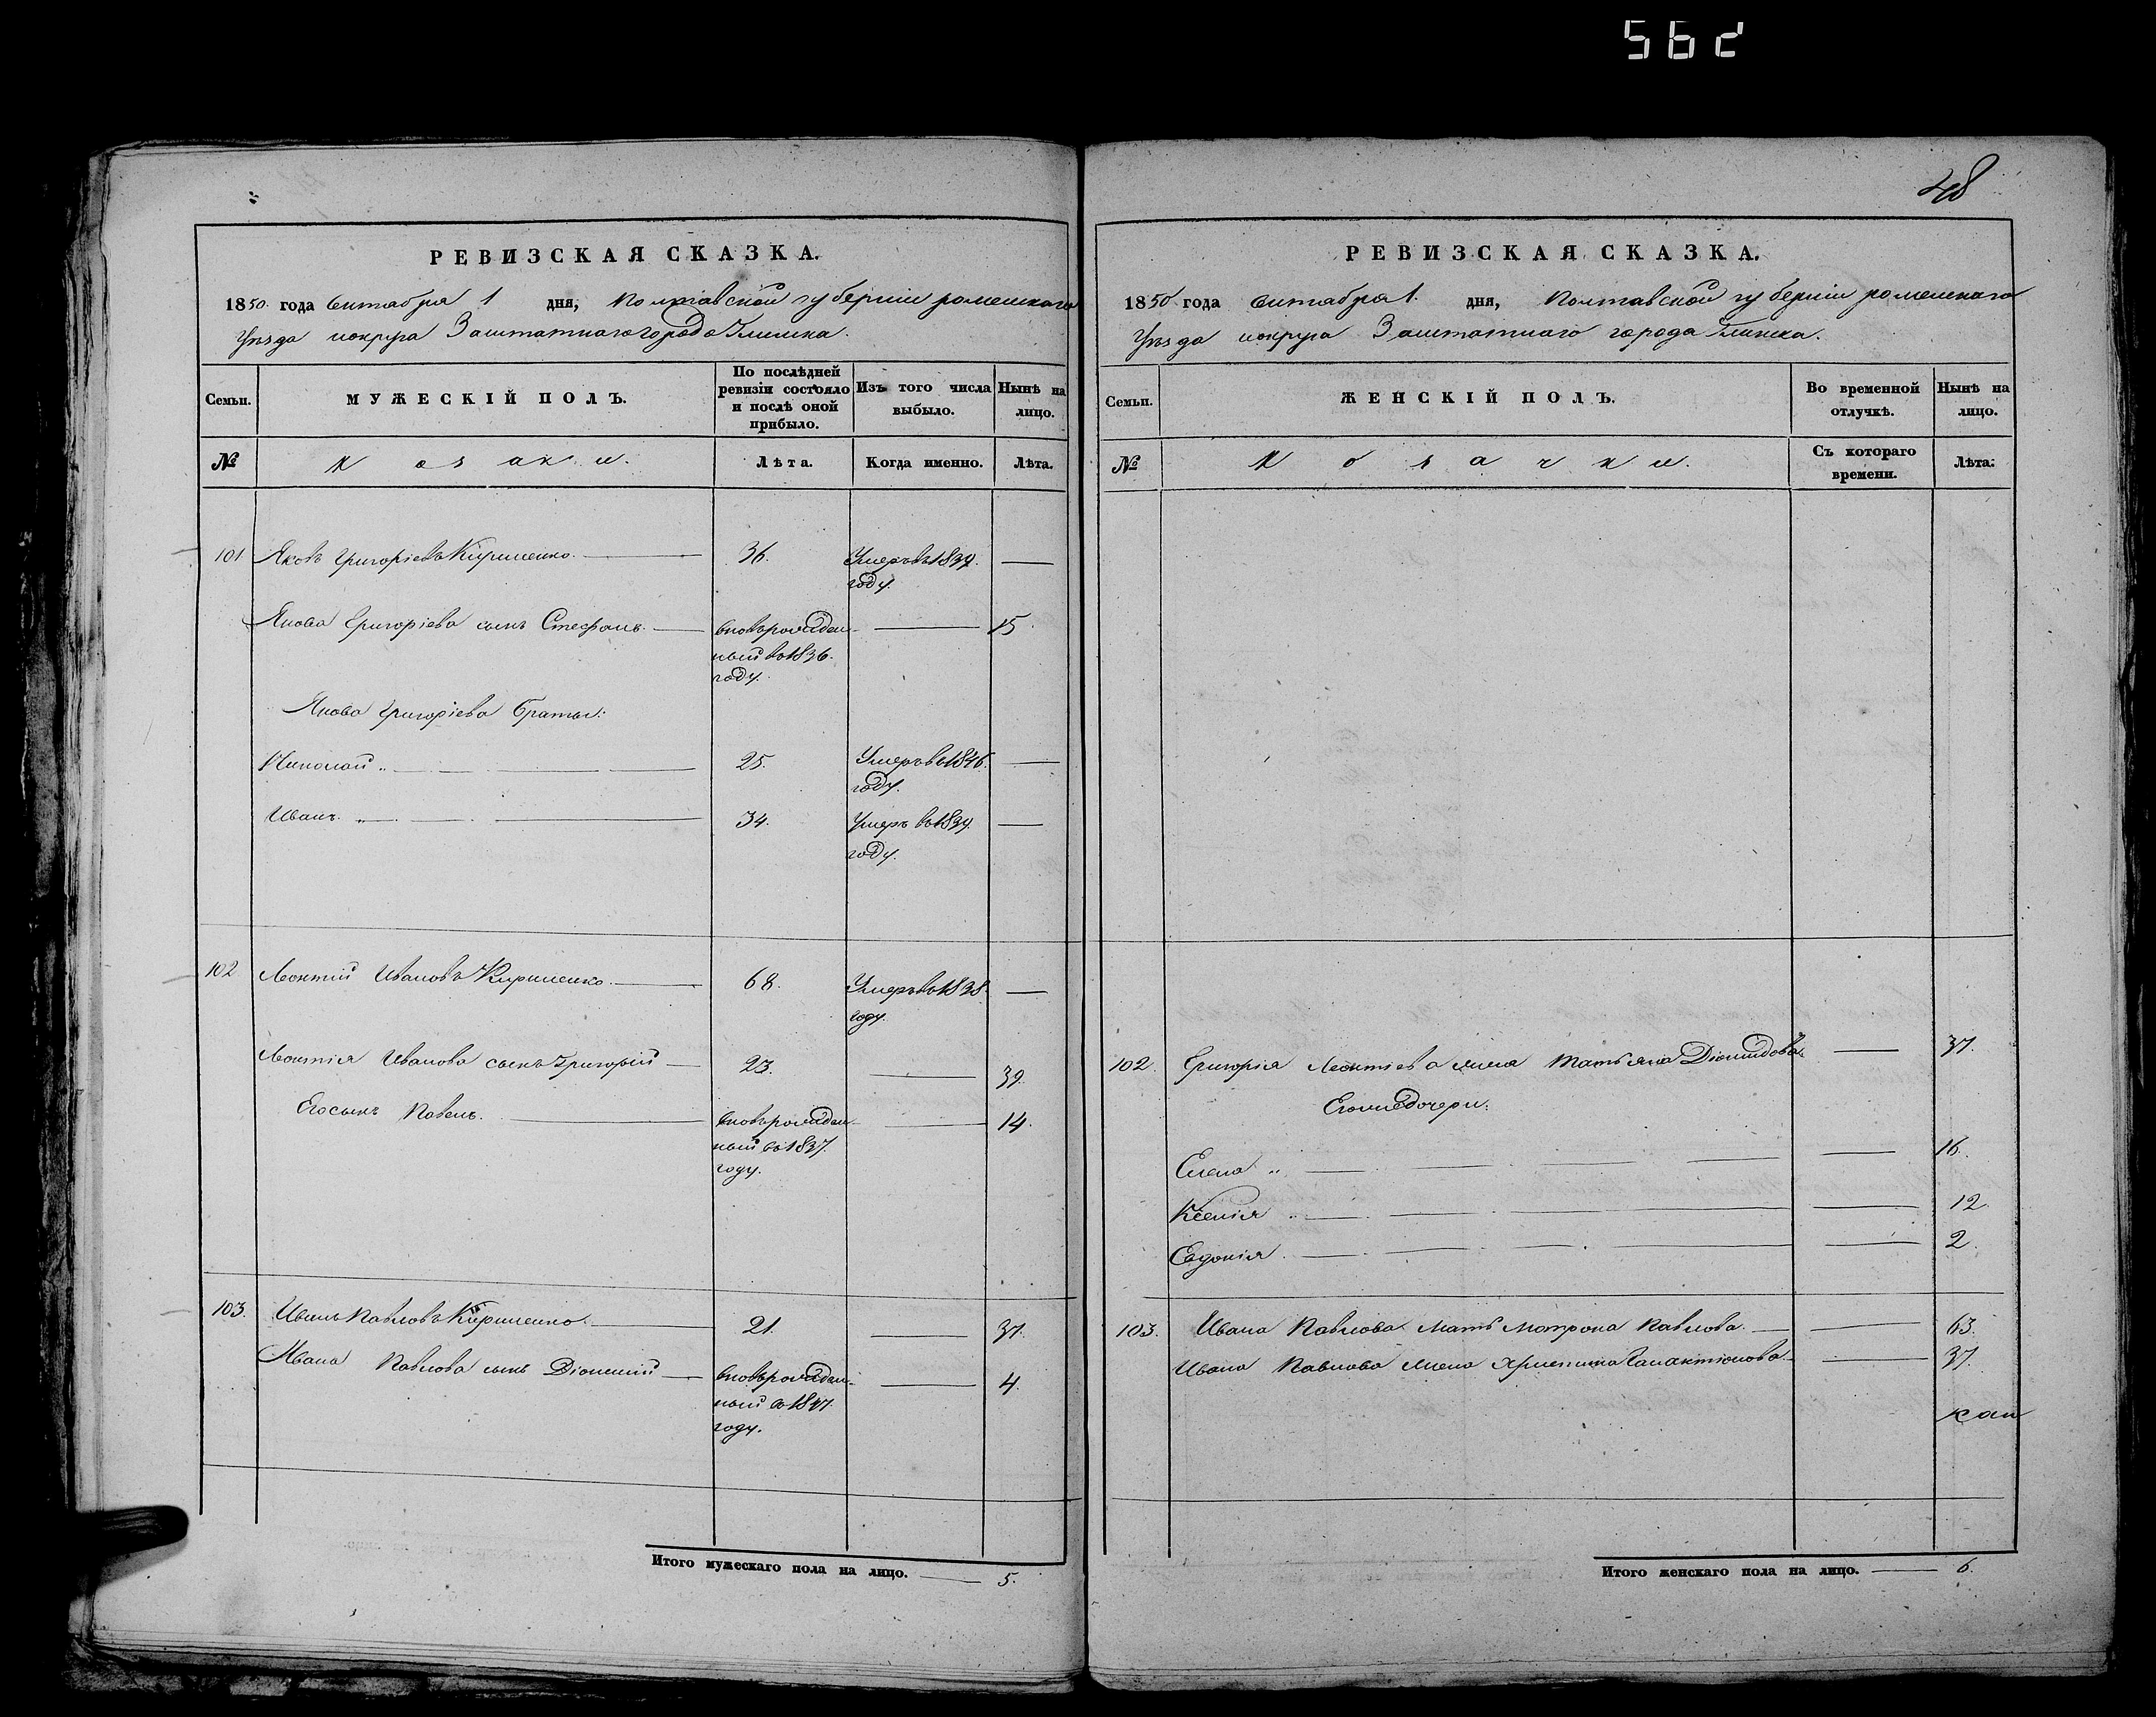 562
48
РЕВИЗСКАЯ СКАЗКА.
1850 года октября 1 дня, Полтавской губернии роменскаго
уѣзда и округа Заштатнаго города Глинска.
Семьи.
МУЖЕСКІЙ ПОЛЪ.
По послѣдней ревизіи состояло и послѣ оной прибыло.
Изъ того числа выбыло.
Нынѣ на лицо.
№
Козаки.
Лѣта.
Когда именно.
Лѣта.
101 Яковъ Григоріевъ Кириленко. 36. Умеръ въ 1837.
году.
Якова Григоріева сынъ Стефанъ. вновьрожден- 15
ный въ 1836.
году.
Якова Григоріева братья:
Николай 25. Умеръ въ 1846.
году.
Иванъ. 34. Умеръ въ 1839.
году.
102 Леонтий Ивановъ Кириленко. 68. Умеръ въ 1838.
году.
Леонтія Иванова сынъ Григорій 23. 39.
Его сынъ Павелъ. вновьрожден- 14.
ный въ 1837.
году.
103. Иванъ Павловъ Кириленко. 21. 37.
Ивана Павлова сынъ Діонисій вновьрожден- 4.
ный въ 1847.
году.
Итого мужескаго пола на лицо. 5.
РЕВИЗСКАЯ СКАЗКА.
1850 года октября 1. дня, Полтавской губерніи роменскаго
уѣзда и округа Заштатнаго города Глинска.
Семьи.
ЖЕНСКІЙ ПОЛЪ.
Во временной отлучкѣ.
Нынѣ на лицо.
№
Козачки.
Съ котораго времени.
Лѣта.
102. Григорія Леонтіева жена Татьяна Діомидова 37.
Его же дочери:
Елена 16.
Ксенія 12.
Евдокія 2.
103. Ивана Павлова мать Матрона Павлова. 63.
Ивана Павлова жена Христина Галактіонова. 37.
Итого женскаго пола на лицо. 6.